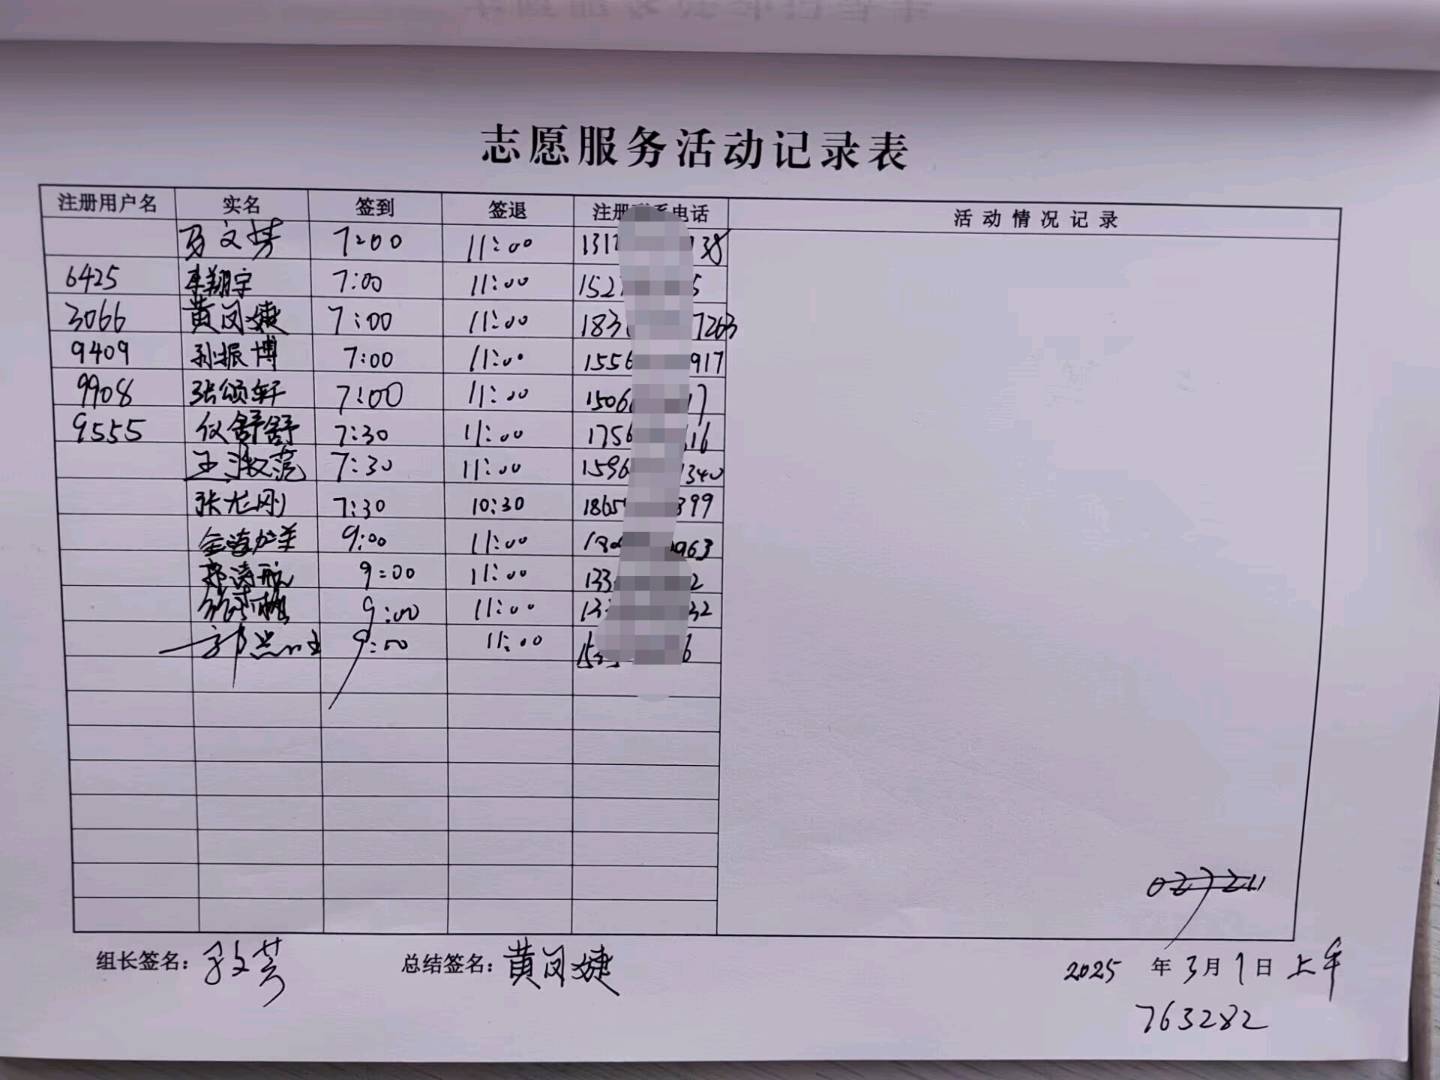 志愿服务活动记录表
注册用户名 实名 签到 签退 注册 电话 活动情况记录
文芳 7:00 11:00 131 38
6425 李翔宇 7:00 11:00 152 5
3066 黄凤婕 7:00 11:00 183 7263
9409 孙振博 7:00 11:00 1556 917
9908 张颂轩 7:00 11:00 1506 17
9555 仪舒舒 7:30 11:00 1756 16
王淑范 7:30 11:00 1596 1340
张尤刚 7:30 10:30 1865 399
9:00 11:00 963
郑涛航 9:00 11:00 133 2
9:00 11:00 13 32
郭 9:00 11:00 15 6
组长签名: 文芳 总结签名: 黄凤婕 2025 年 3 月 1 日 上午
763282